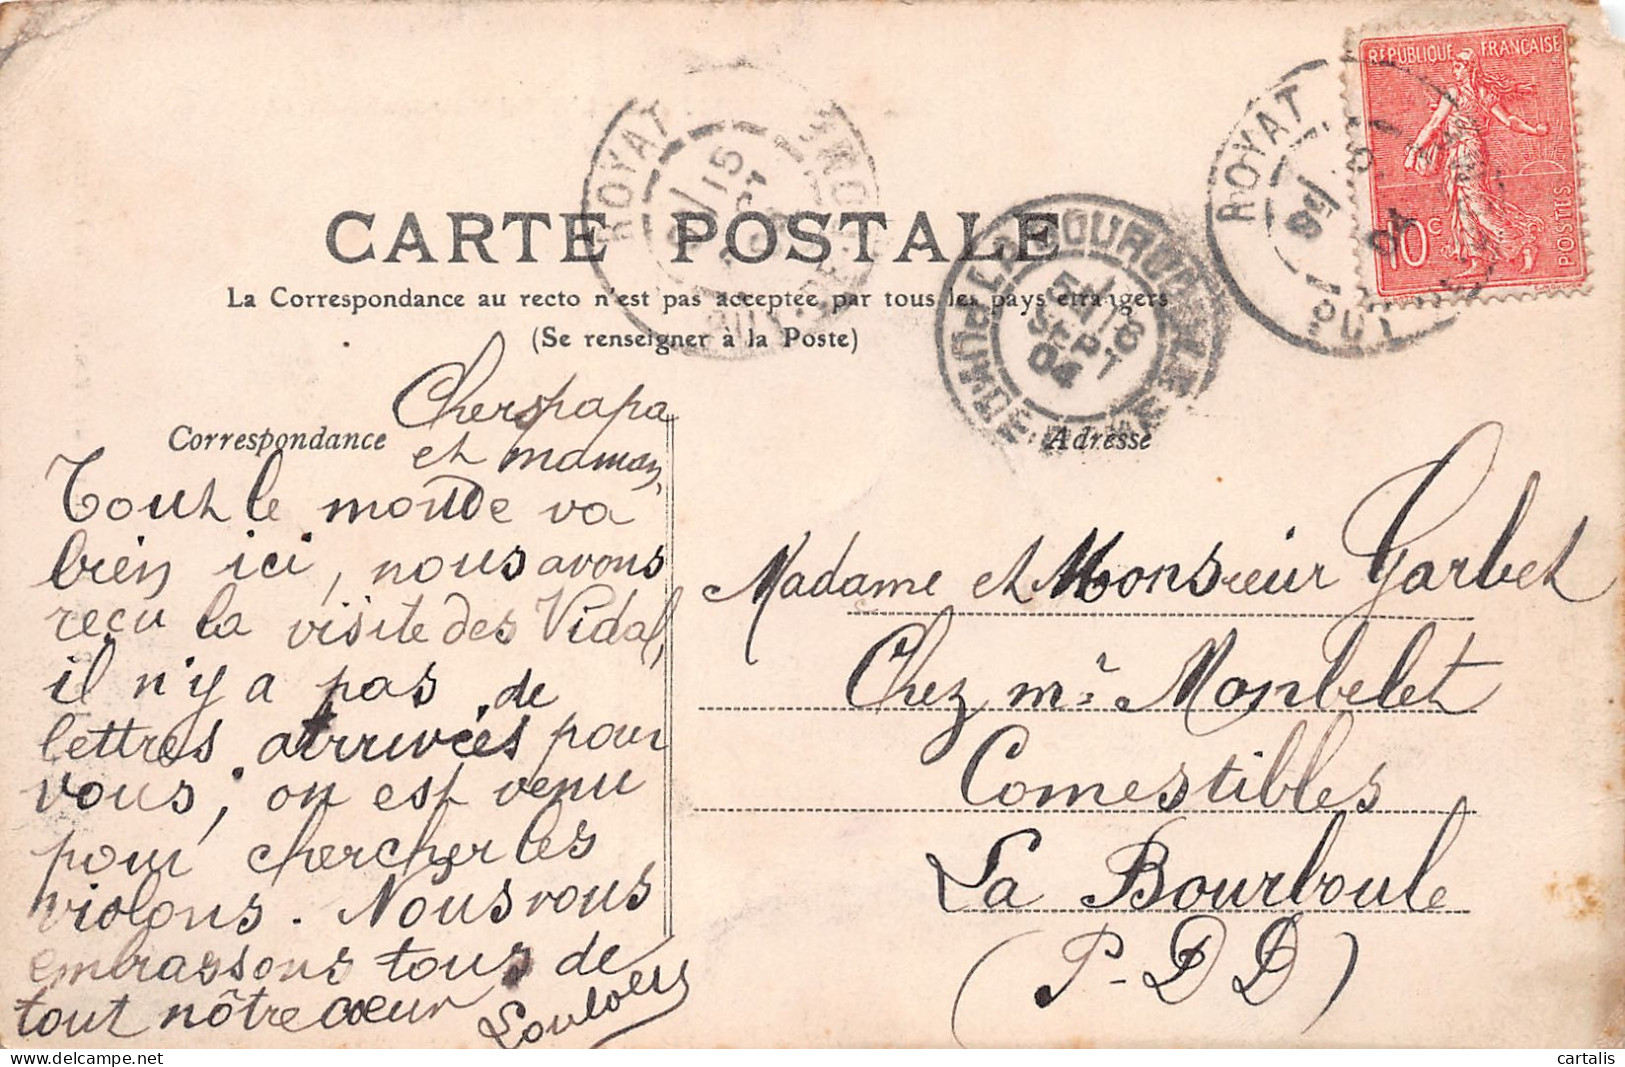 RÉPUBLIQUE FRANÇAISE
10c
POSTES
ROYAT
15
ROYAT
PUY
CARTE POSTALE
LA BOURBOULE
16
SEPT
04
PUY-DE-DOME
La Correspondance au recto n'est pas acceptée par tous les pays étrangers
(Se renseigner à la Poste)
Correspondance
Adresse
Chers papa
et maman,
Tout le monde va
bien ici, nous avons
reçu la visite des Vidal,
il n'y a pas de
lettres arrivées pour
vous; on est venu
pour chercher les
violons. Nous vous
embrassons tous de
tout nôtre cœur
Madame et Monsieur Garbet
Chez Mr Monbelet
Comestibles
La Bourboule
(P-DD)
cartalis